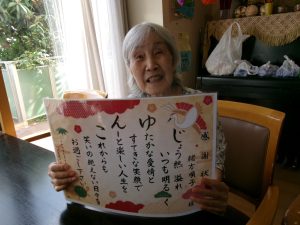 感謝状
緒方順子様
じょう熱溢れ
いつも明るく
ゆたかな愛情と
すてきな笑顔で
んーと楽しい人生を
これからも
笑いの絶えない日々を
お過ごし下さい